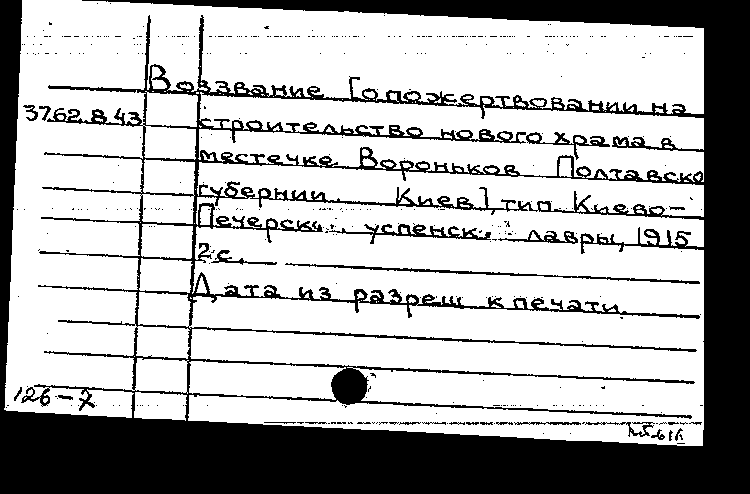 Воззвание [о пожертвовании на
37.62.8.43 строительство нового храма в
местечке Вороньков Полтавско
губернии. Киев], тип. Киево-
Печерск. успенск. лавры, 1915
2 с.
Дата из разреш к печати.
126-7